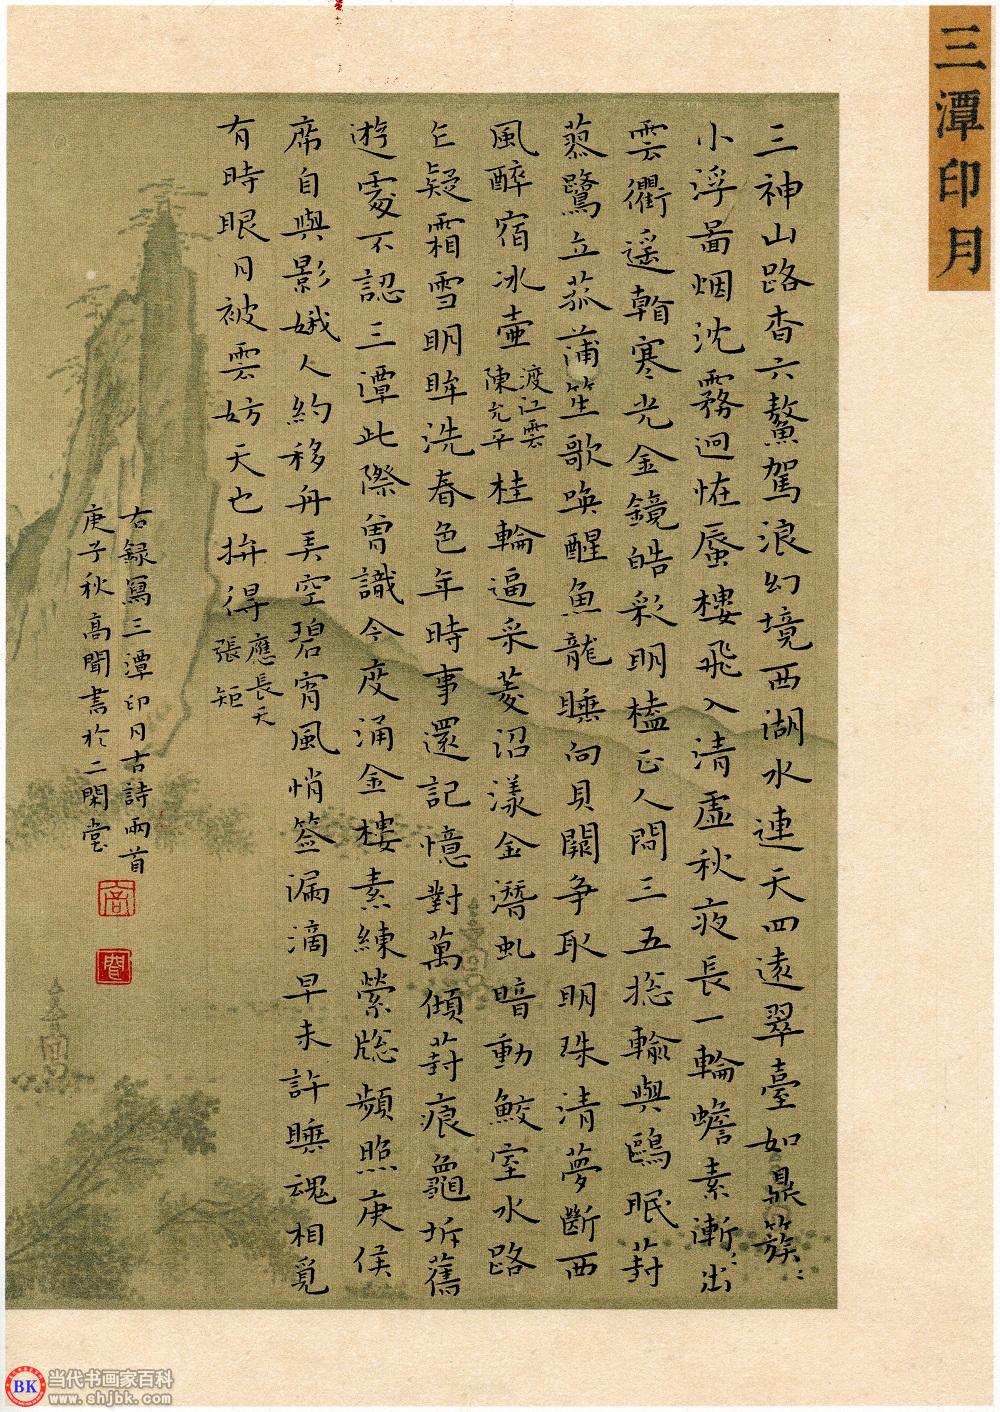 三潭印月
三神山路杳六鼇駕浪幻境西湖水連天四遠翠臺如鼎簇〻
小浮啚烟沈霧迥恠蜃樓飛入清虛秋夜長一輪蟾素漸〻出
雲衢遥翰寒光金鏡皓彩明樯正人間三五捴輸與鷗眠葑
蓼鷺立菰蒲笙歌喚醒魚龍睡向貝闕争取明珠清夢斷西
風醉宿冰壷 渡江雲 陳允平 桂輪逼采菱沼漾金潛虬暗動鮫室水路
乍疑霜雪明眸洗春色年時事還記憶對萬傾葑痕龜坼舊
遊處不認三潭此際曾識今度涌金樓素練縈牕頻照庾侯
席自與影娥人約移舟弄空碧宵風悄簽漏滴早未許睡魂相覓
有時眼月被雲妨天也拚得 應長天 張矩
右録寫三潭印月古詩兩首
庚子秋高聞書於二閑堂
高
聞
BK 当代书画家百科
www.shjbk.com